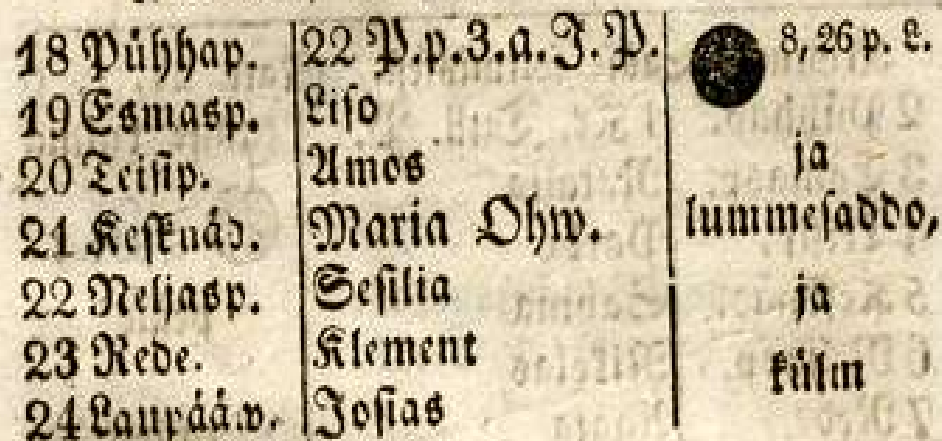 18 Pühhap. 22 P.p.3.a.J.P. 8,26 p. L.
19 Esmasp. Liso
20 Teisip. Amos ja
21 Keſknäd. Maria Ohw. lummeſaddo,
22 Neljasp. Seſilia ja
23 Rede. Klement külm
24 Laupääw. Joſias